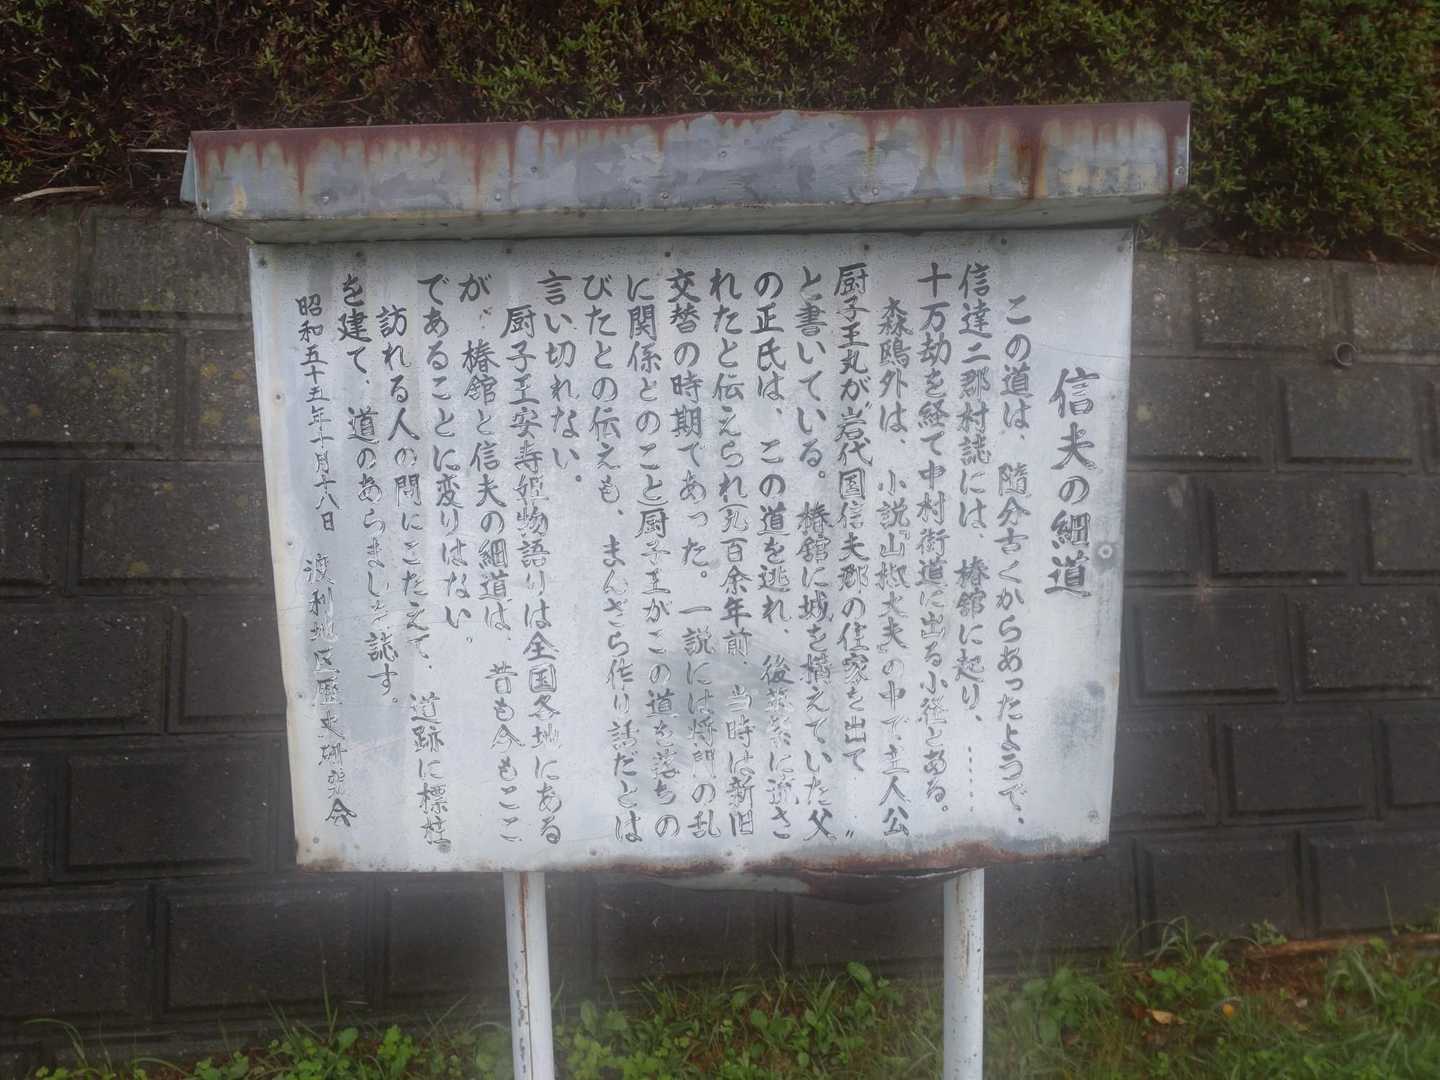 信夫の細道
この道は、随分古くからあったようで、
信達二郡村誌には、椿館に起り、……
十万劫を経て中村街道に出る小径とある。
森鴎外は、小説『山椒大夫』の中で主人公
厨子王丸が岩代国信夫郡の住家を出て〃
と書いている。椿舘に城を構えていた父
の正氏は、この道を逃れ、後筑紫に流さ
れたと伝えられ(九百余年前、当時は新旧
交替の時期であった。一説には将門の乱
に関係とのこと)厨子王がこの道を落ちの
びたとの伝えも、まんざら作り話だとは
言い切れない。
厨子王安寿姫物語りは全国各地にある
が、椿舘と信夫の細道は、昔も今もここ
であることに変りはない。
訪れる人の問にこたえて、道跡に標柱
を建て、道のあらましを誌す。
昭和五十五年十月十八日 渡利地区歴史研究会